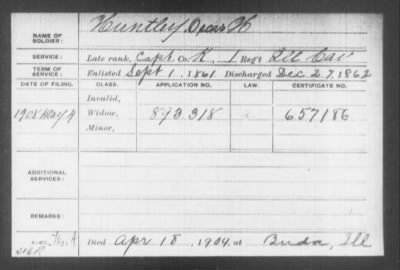 NAME OF SOLDIER: Huntley, Oscar H
SERVICE: Late rank, Capt Co. K, 1 Reg't Ill Cav
TERM OF SERVICE: Enlisted Sept 1, 1861 Discharged Dec 27, 1862
DATE OF FILING. CLASS. APPLICATION NO. LAW. CERTIFICATE NO.
Invalid,
1908 May 4 Widow, 893.318 657186
Minor,
ADDITIONAL SERVICES:
REMARKS:
Died Apr 18, 1904, at Buda, Ill